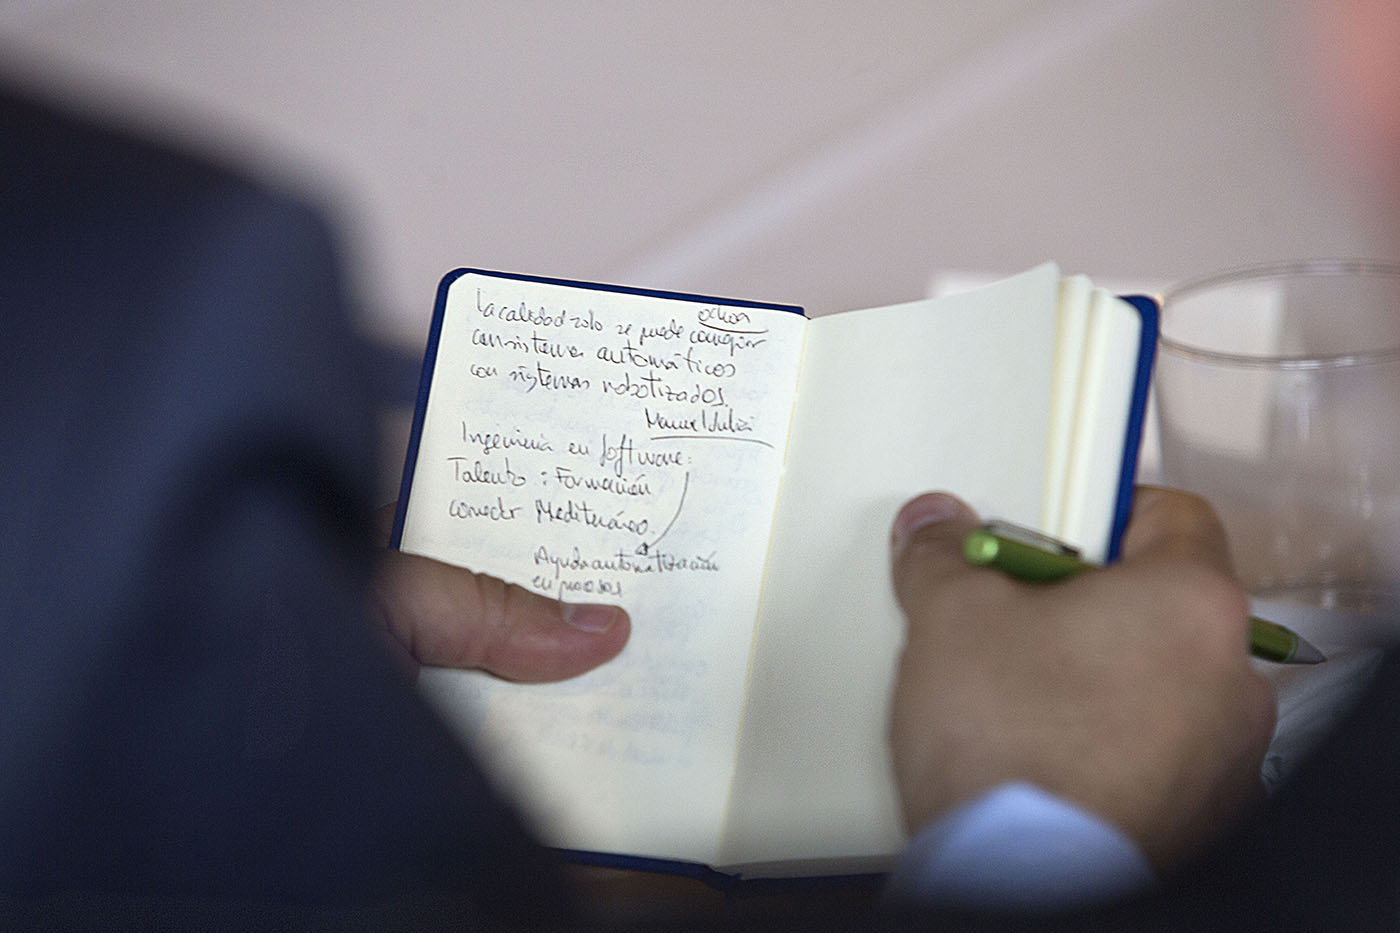 ochoa
La calidad solo se puede conseguir
con sistemas automáticos
con sistemas robotizados.
Manuel Julià
Ingeniería en Software:
Talento : Formación
conectar Mediterráneo.
Ayuda automatización
en procesos